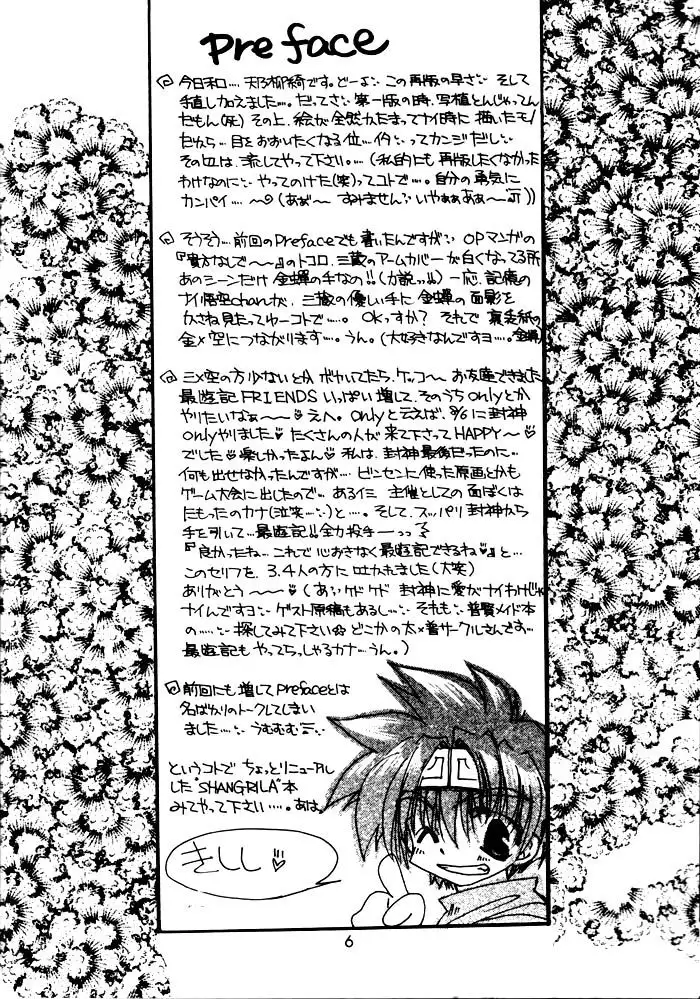 Preface
今日和…. 天乃柳綺です。どーよ この再版の早さ そして
手直し加えました…。だってさ 第一版の時、写植とんじゃってん
だもん(死) その上、絵が全然かたまってナイ時に描いたモノ
だから… 目をおおいたくなる位… ってカンジだし
その辺は、流してやって下さい。…(私的にも再版したくなかった
わけなのに やってのけた(笑)ってコトで…。自分の勇気に
カンパイ…〜 (あぁ〜 すみません いやぁぁあぁ〜))
そうそう…前回のPrefaceでも書いたんですが OPマンガの
『貴方なしで〜〜』のトコロ、三蔵のアームカバーが白くなってる所
あのシーンだけ 金蝉の手なの!!(力説っ!!) 一応、記憶の
ナイ悟空chanが、三蔵の優しい手に 金蝉の面影を
かさね見たってゆーコトで…。OKっすか? それで 裏表紙の
金×空につながります…。うん。(大好きなんですヨ…。金蝉)
三×空の方少ないとか ボヤいてたら、ケッコ〜 お友達できました
最遊記FRIENDS いっぱい増して、そのうち onlyとか
やりたいなぁ〜〜 えへ。onlyと云えば、8/6に封神
onlyやりました♡ たくさんの人が 来て下さってHAPPY〜♡
でした♡楽しかったよん♡ 私は、封神最後だったのに…
何も出せなかったんですが… ビンセンに使った原画とかも
ゲーム大会に出したので… あるイミ 主催としての面ぼくは
たもったのカナ(泣笑…)と…。そして、スッパリ封神から
手を引いて… 最遊記!!全力投手ーっっ
『良かったね… これで心おきなく最遊記できるね♡』と…
このセリフを 3.4人の方に 吐かれました(大笑)
ありがとう〜〜 (あっ ケド ケド 封神に愛がナイわけじゃ
ナイんですヨ ゲスト原稿もあるし… それも 普賢メイド本
の…… 探してみて下さい☆ どこかの太×普サークルさんです…
最遊記も やってらっしゃるカナ…うん。)
前回にも増してPrefaceとは
名ばかりのトークしてしまい
ました…. うむむむ
というコトで ちょっとリニューアル
した"SHANGRILA"本
みてやって下さい…。あは。
きししし♡
6